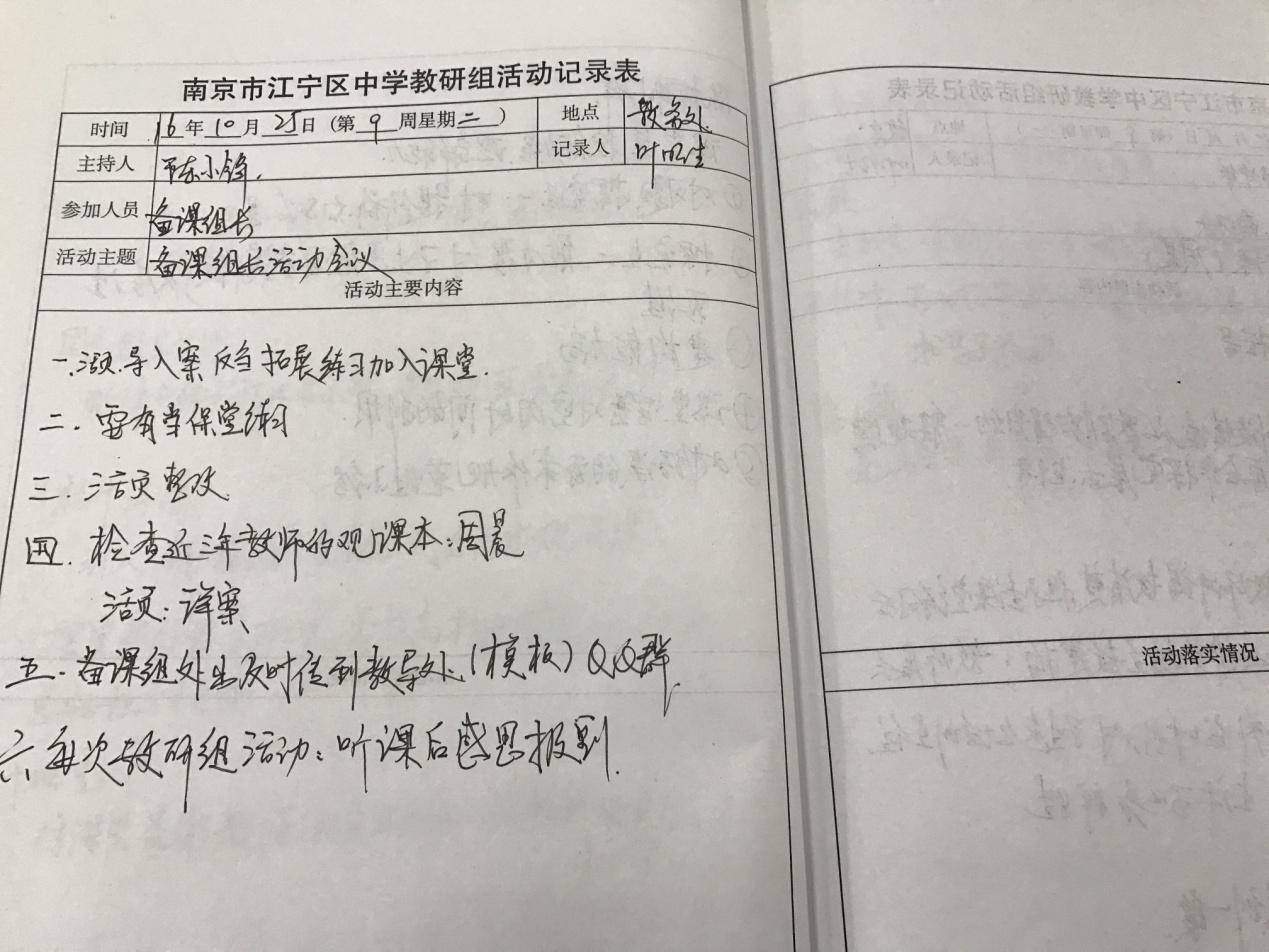 南京市江宁区中学教研组活动记录表
时间 16年10月25日（第9周星期二） 地点 教务处
主持人 陈小锋. 记录人 叶明生
参加人员 备课组长
活动主题 备课组长活动会议
活动主要内容
一.活页.导入案 拓展练习加入课堂.
二.要有当保堂练习
三.活页整改.
四.检查近三年教师的观课本:周晨
活页:详案
五.备课组处 及时传到教导处.(模板)QQ群.
六.每次教研组活动:听课后感思报到.
活动落实情况